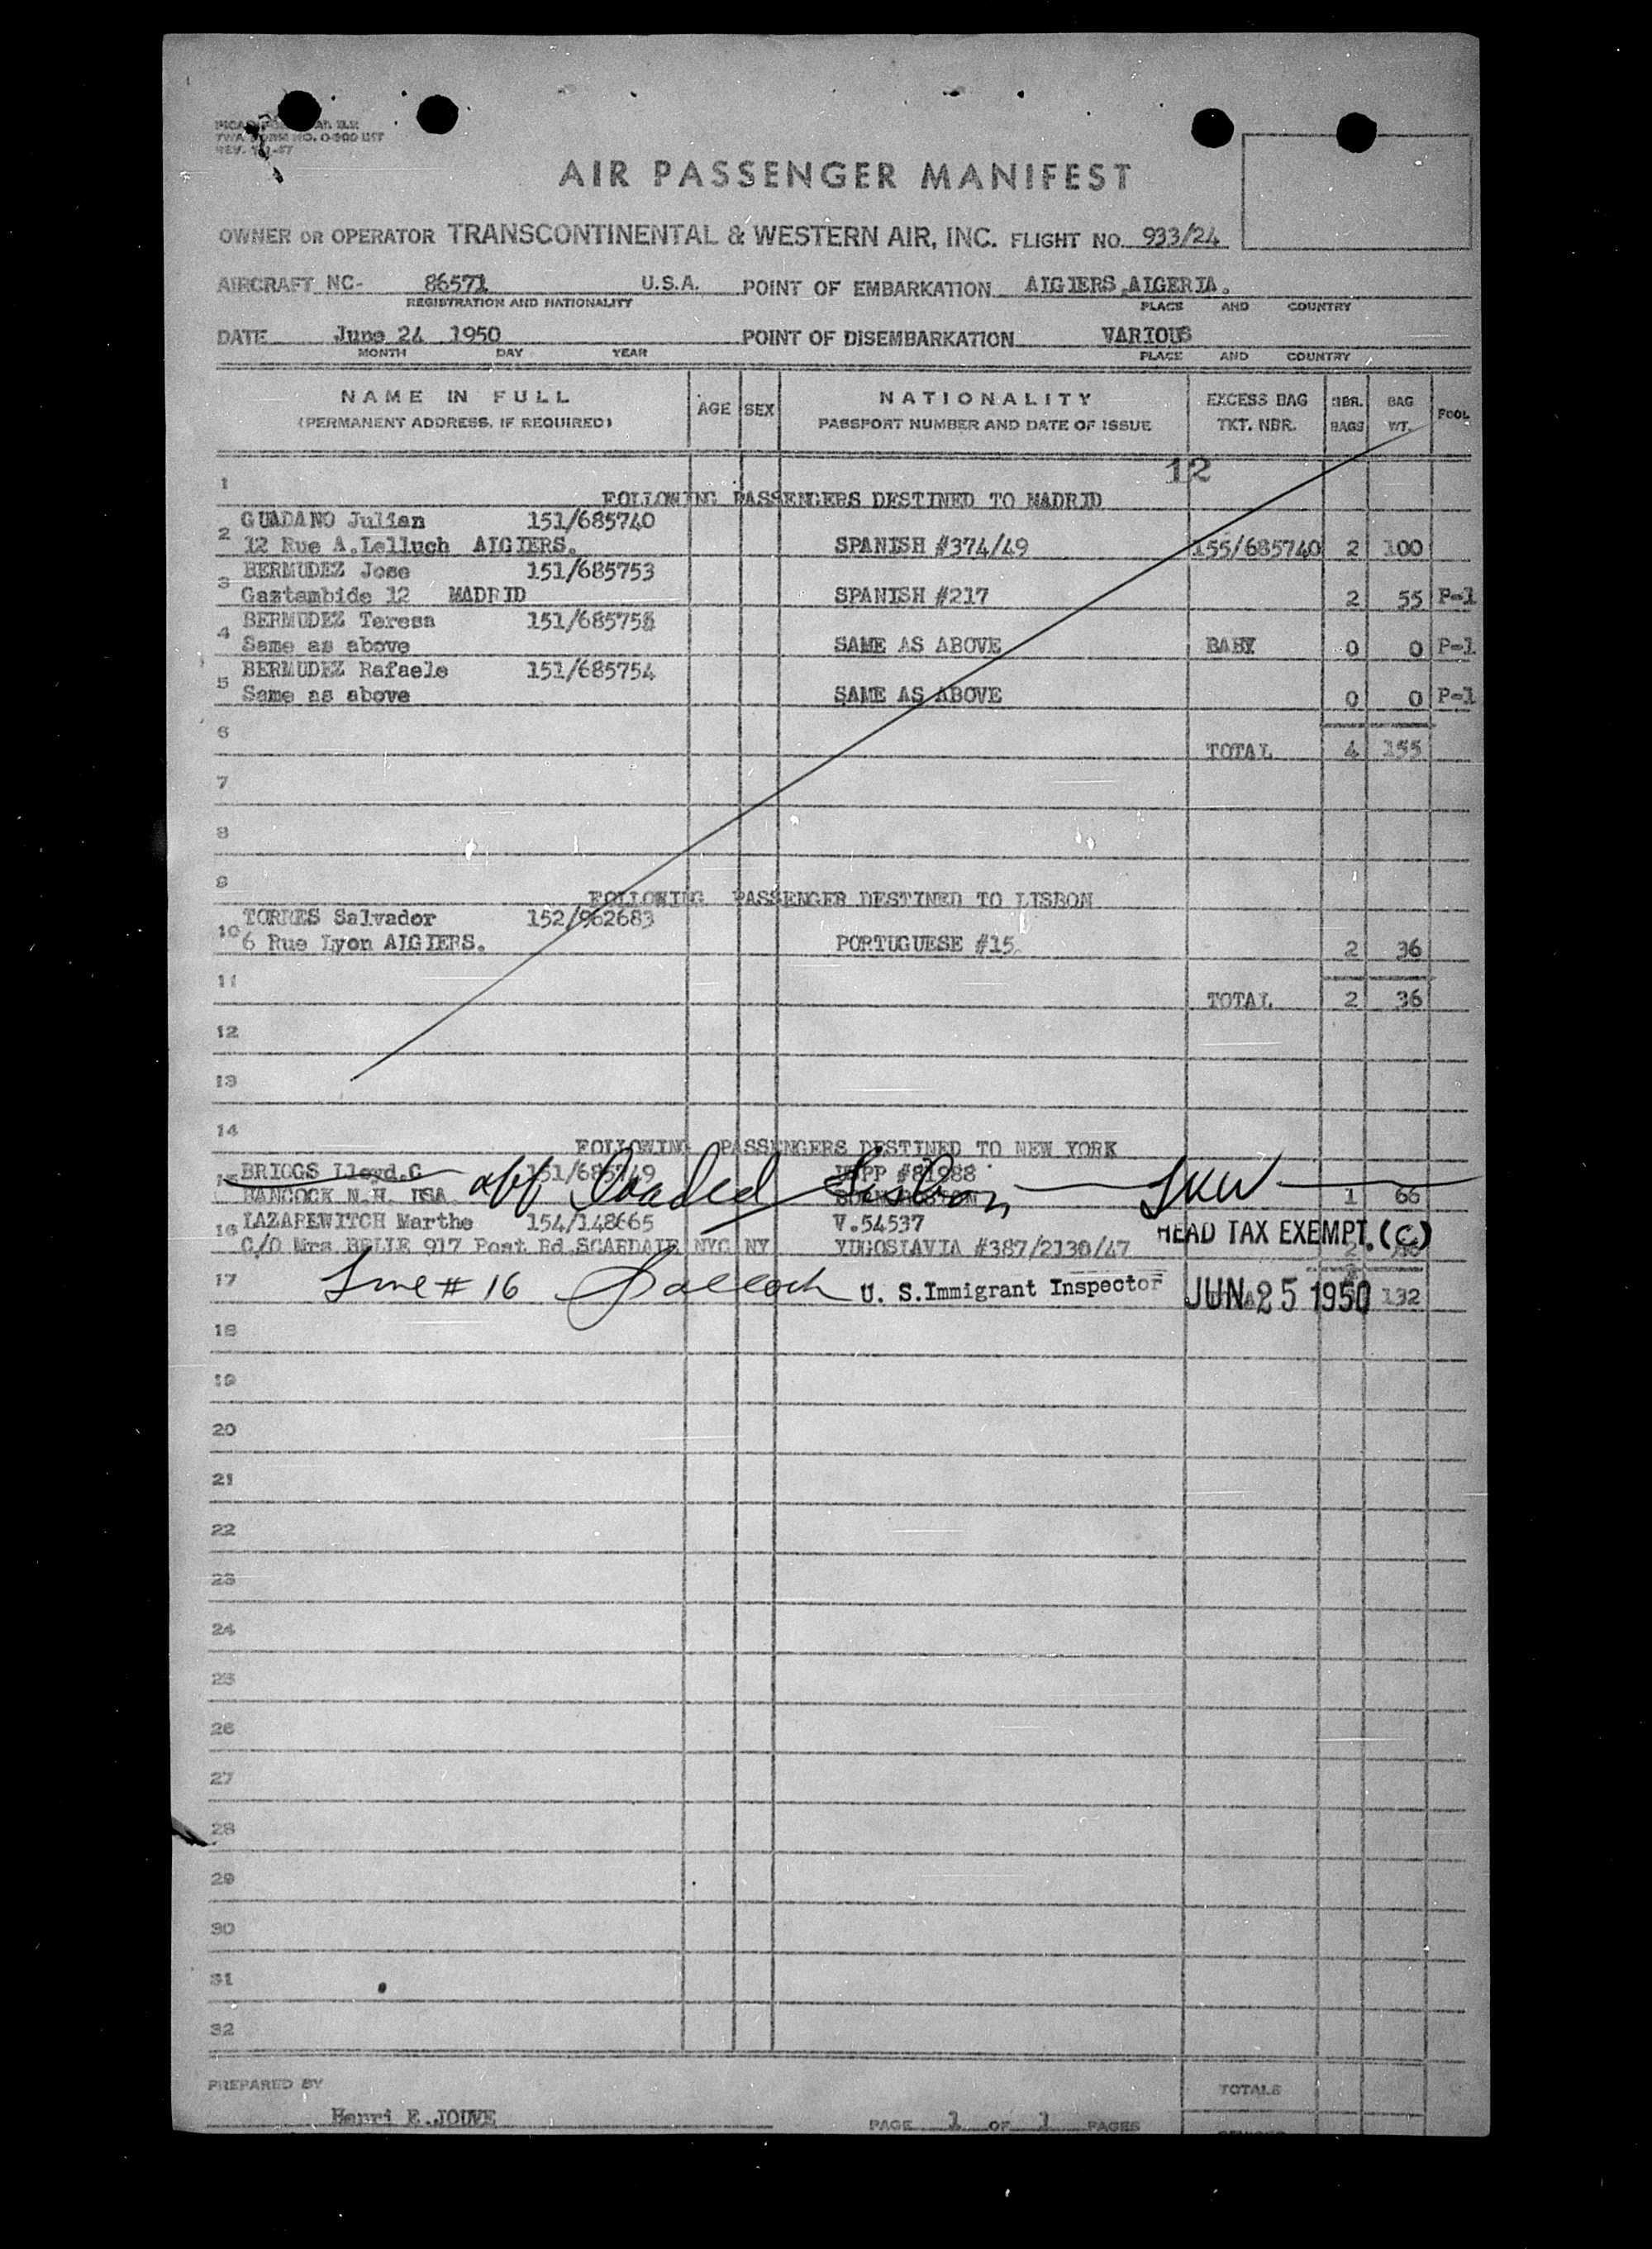 TWA FORM NO. O-900 INT
AIR PASSENGER MANIFEST
OWNER OR OPERATOR TRANSCONTINENTAL & WESTERN AIR, INC. FLIGHT NO. 933/24
AIRCRAFT NC- 86571 U.S.A. POINT OF EMBARKATION ALGIERS ALGERIA.
REGISTRATION AND NATIONALITY PLACE AND COUNTRY
DATE June 24 1950 POINT OF DISEMBARKATION VARIOUS
MONTH DAY YEAR PLACE AND COUNTRY
NAME IN FULL AGE SEX NATIONALITY EXCESS BAG NBR. BAG POOL
(PERMANENT ADDRESS, IF REQUIRED) PASSPORT NUMBER AND DATE OF ISSUE TKT. NBR. BAGS WT.
12
1 FOLLOWING PASSENGERS DESTINED TO MADRID
GUADANO Julian 151/685740
2 12 Rue A.Lelluch ALGIERS. SPANISH #374/49 155/685740 2 100
BERMUDEZ Jose 151/685753
3 Gaztambide 12 MADRID SPANISH #217 2 55 P-1
BERMUDEZ Teresa 151/685755
4 Same as above SAME AS ABOVE BABY 0 0 P-1
BERMUDEZ Rafaele 151/685754
5 Same as above SAME AS ABOVE 0 0 P-1
6 TOTAL 4 155
7
8
9 FOLLOWING PASSENGER DESTINED TO LISBON
TORRES Salvador 152/962683
10 6 Rue Lyon ALGIERS. PORTUGUESE #15 2 36
11 TOTAL 2 36
12
13
14 FOLLOWING PASSENGERS DESTINED TO NEW YORK
BRIGGS Lloyd.C 151/685749 #81988
off loaded Lisbon JKW
15 HANCOCK N.H. USA 1 66
LAZAREWITCH Marthe 154/148665 V.54537
HEAD TAX EXEMPT. (C)
16 C/O Mrs BELLE 917 Post Rd SCARDALE NYC NY YUGOSLAVIA #387/2130/47 2
17 Line # 16 U. S.Immigrant Inspector JUN 25 1950 132
18
19
20
21
22
23
24
25
26
27
28
29
30
31
32
PREPARED BY TOTALS
Henri E.JOUVE PAGE 1 OF 1 PAGES